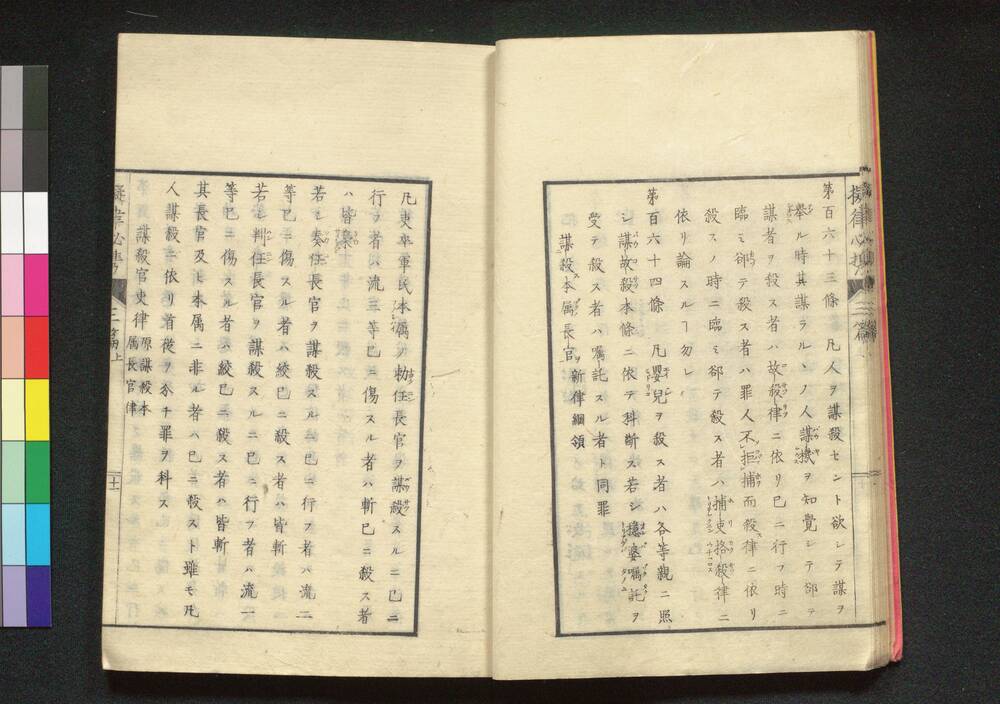 擬律必携
三篇
第百六十三條 凡人ヲ謀殺セント欲レテ謀ヲ
擧ル時其謀ラルヽノ人謀機ヲ知覺シテ却テ
謀者ヲ殺ス者ハ故殺律ニ依リ已ニ行フ時ニ
臨ミ却テ殺ス者ハ罪人不拒捕而殺律ニ依リ
殺スノ時ニ臨ミ却テ殺ス者ハ捕吏格殺律ニ
依リ論スルヿ勿レ
第百六十四條 凡嬰兒ヲ殺ス者ハ各等親ニ照
シ謀故殺本條ニ依テ科斷ス若シ穩婆嘱託ヲ
受テ殺ス者ハ嘱託スル者ト同罪
謀殺本属長官 新律綱領
凡吏卒軍民本属ノ勅任長官ヲ謀殺スルニ已ニ
行フ者ハ流三等已ニ傷スル者ハ斬已ニ殺ス者
ハ皆梟
若シ奏任長官ヲ謀殺スルニ已ニ行フ者ハ流二
等已ニ傷スル者ハ絞已ニ殺ス者ハ皆斬
若シ判任長官ヲ謀殺スルニ已ニ行フ者ハ流一
等已ニ傷スル者ハ絞已ニ殺ス者ハ皆斬
其長官及ヒ本属ニ非ル者ハ已ニ殺スト雖モ凡
人謀殺ニ依リ首從ヲ分チ罪ヲ科ス
謀殺官吏律 原謀殺本属長官律
三篇上
十一